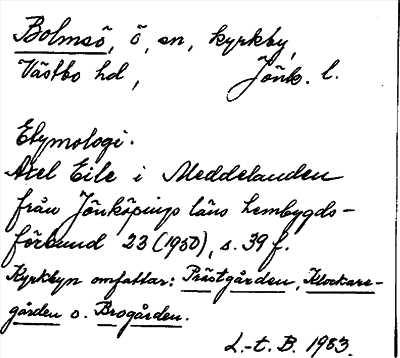 Bolmsö, ö, sn, kyrkby,
Västbo hd, Jönk. l.
Etymologi.
Axel Eile i Meddelanden
från Jönköpings läns hembygds-
förbund 23 (1950), s. 39 f.
Kyrkbyn omfattar: Prästgården, Klockare-
gården o. Brogården.
L.-t. B. 1983.